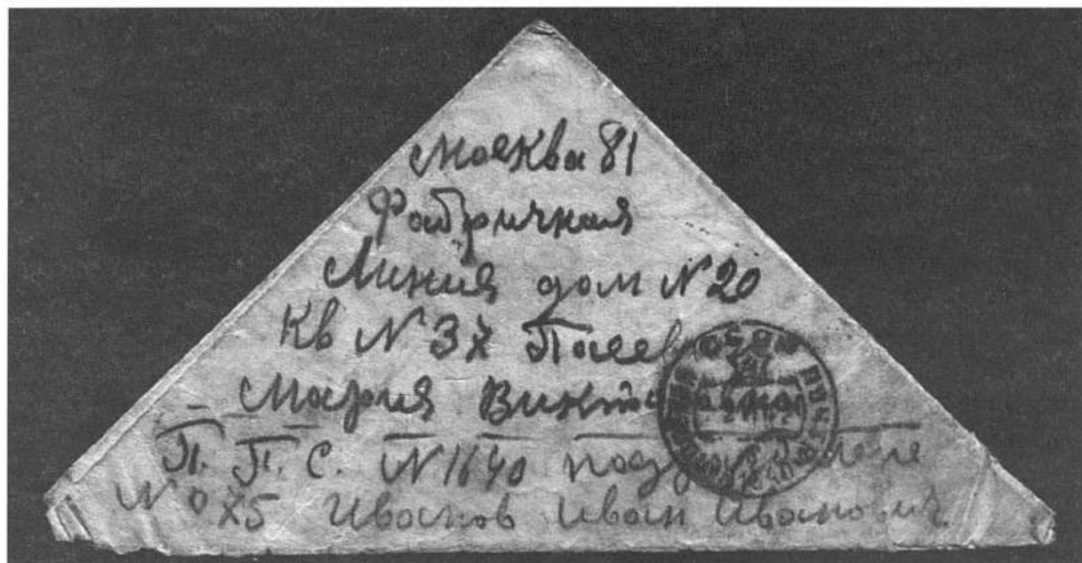 Москва 81
Фабричная
Линия дом N 20
Кв N 37
Мария
П. П. С. N 1640
N 075 Иванов Иван Иванович